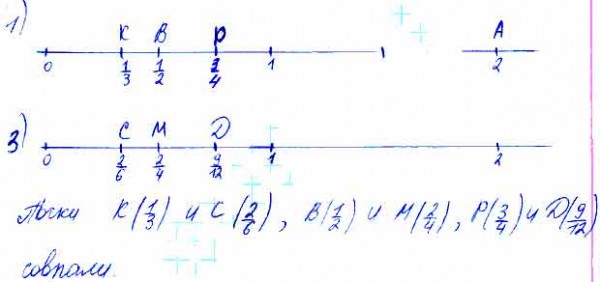 1)
K B P A
0 1/3 1/2 3/4 1 2
3)
C M D
0 2/6 2/4 9/12 1 2
Точки K(1/3) и C(2/6), B(1/2) и M(2/4), P(3/4) и D(9/12)
совпали.